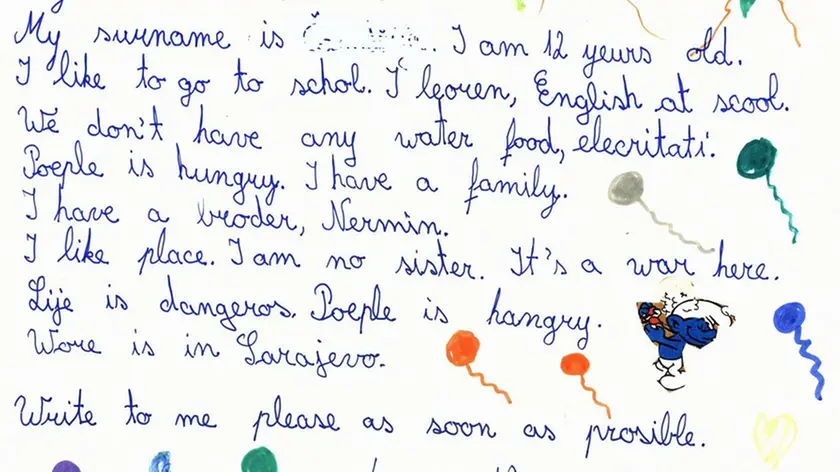 My surname is . I am 12 yeurs old.
I like to go to schol. I leoren, English at scool.
We don't have any water food, elecritati.
Poeple is hungry. I have a family.
I have a broder, Nermin.
I like place. I am no sister. It's a war here.
Lije is dangeros. Poeple is hangry.
Wore is in Sarajevo.
Write to me please as soon as prosible.